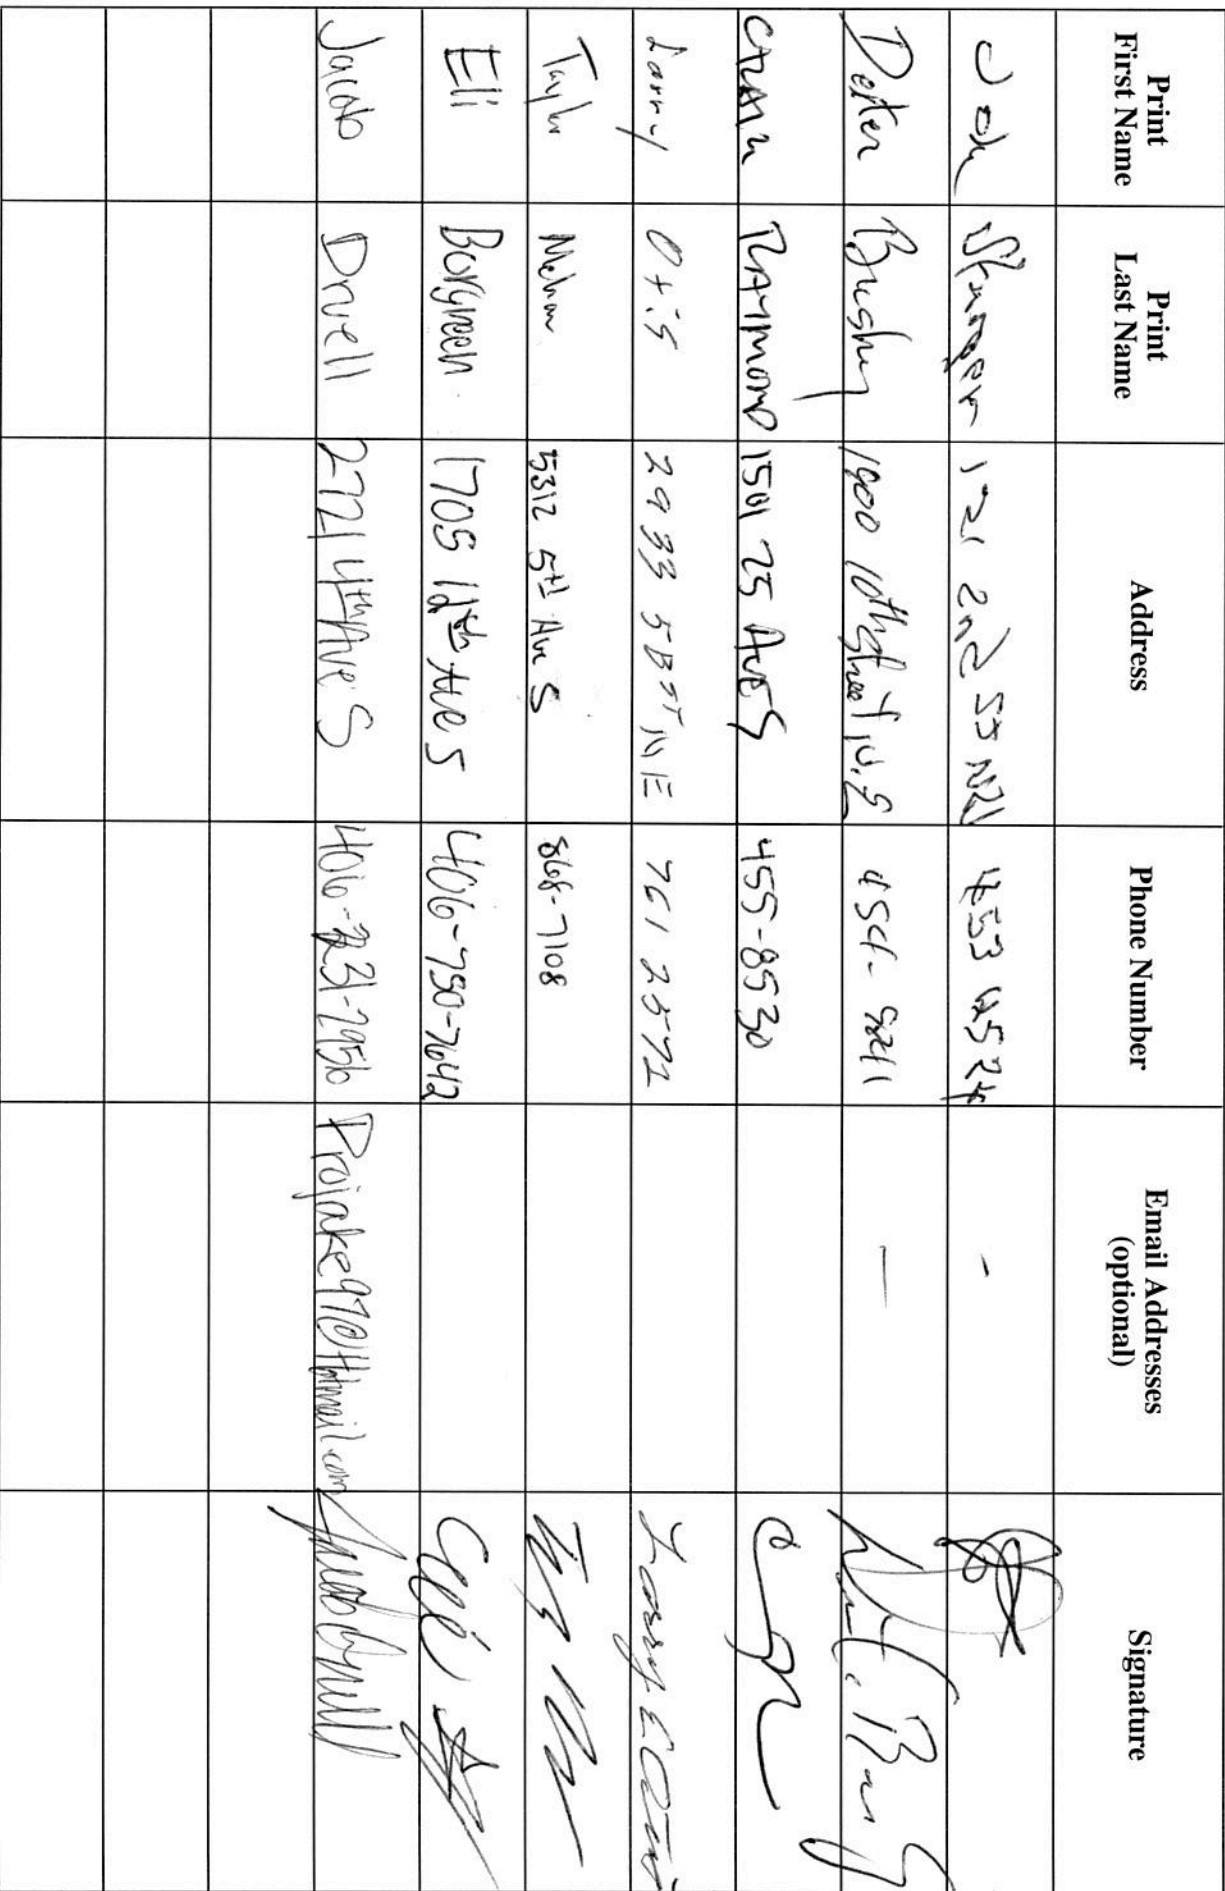 Print First Name | Print Last Name | Address | Phone Number | Email Addresses (optional) | Signature
121 2nd St NW 453 4524 -
Dexter Busby 1900 10th Street N.E 454-9241 —
CRAIG RAYMOND 1501 25 Ave S 455-8530
Larry Otis 2933 5B ST NE 761 2572 Larry E Otis
Taylor 5312 5th Ave S 868-7108
Eli Borgreen 1705 12th Ave S 406-750-7642
Jacob Druell 2721 4th Ave S 406-231-2956 Projake97@Hotmail.com Jacob Druell